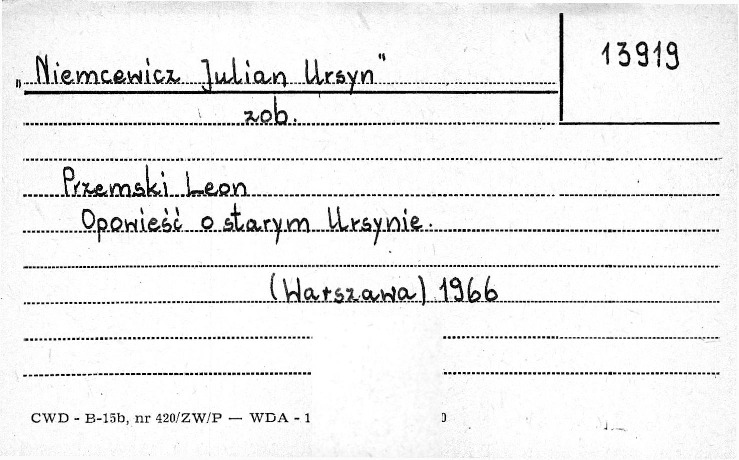 „Niemcewicz Julian Ursyn"
13919
zob.
Przemski Leon
Opowieść o starym Ursynie.
(Warszawa) 1966
CWD - B-15b, nr 420/ZW/P — WDA - 1